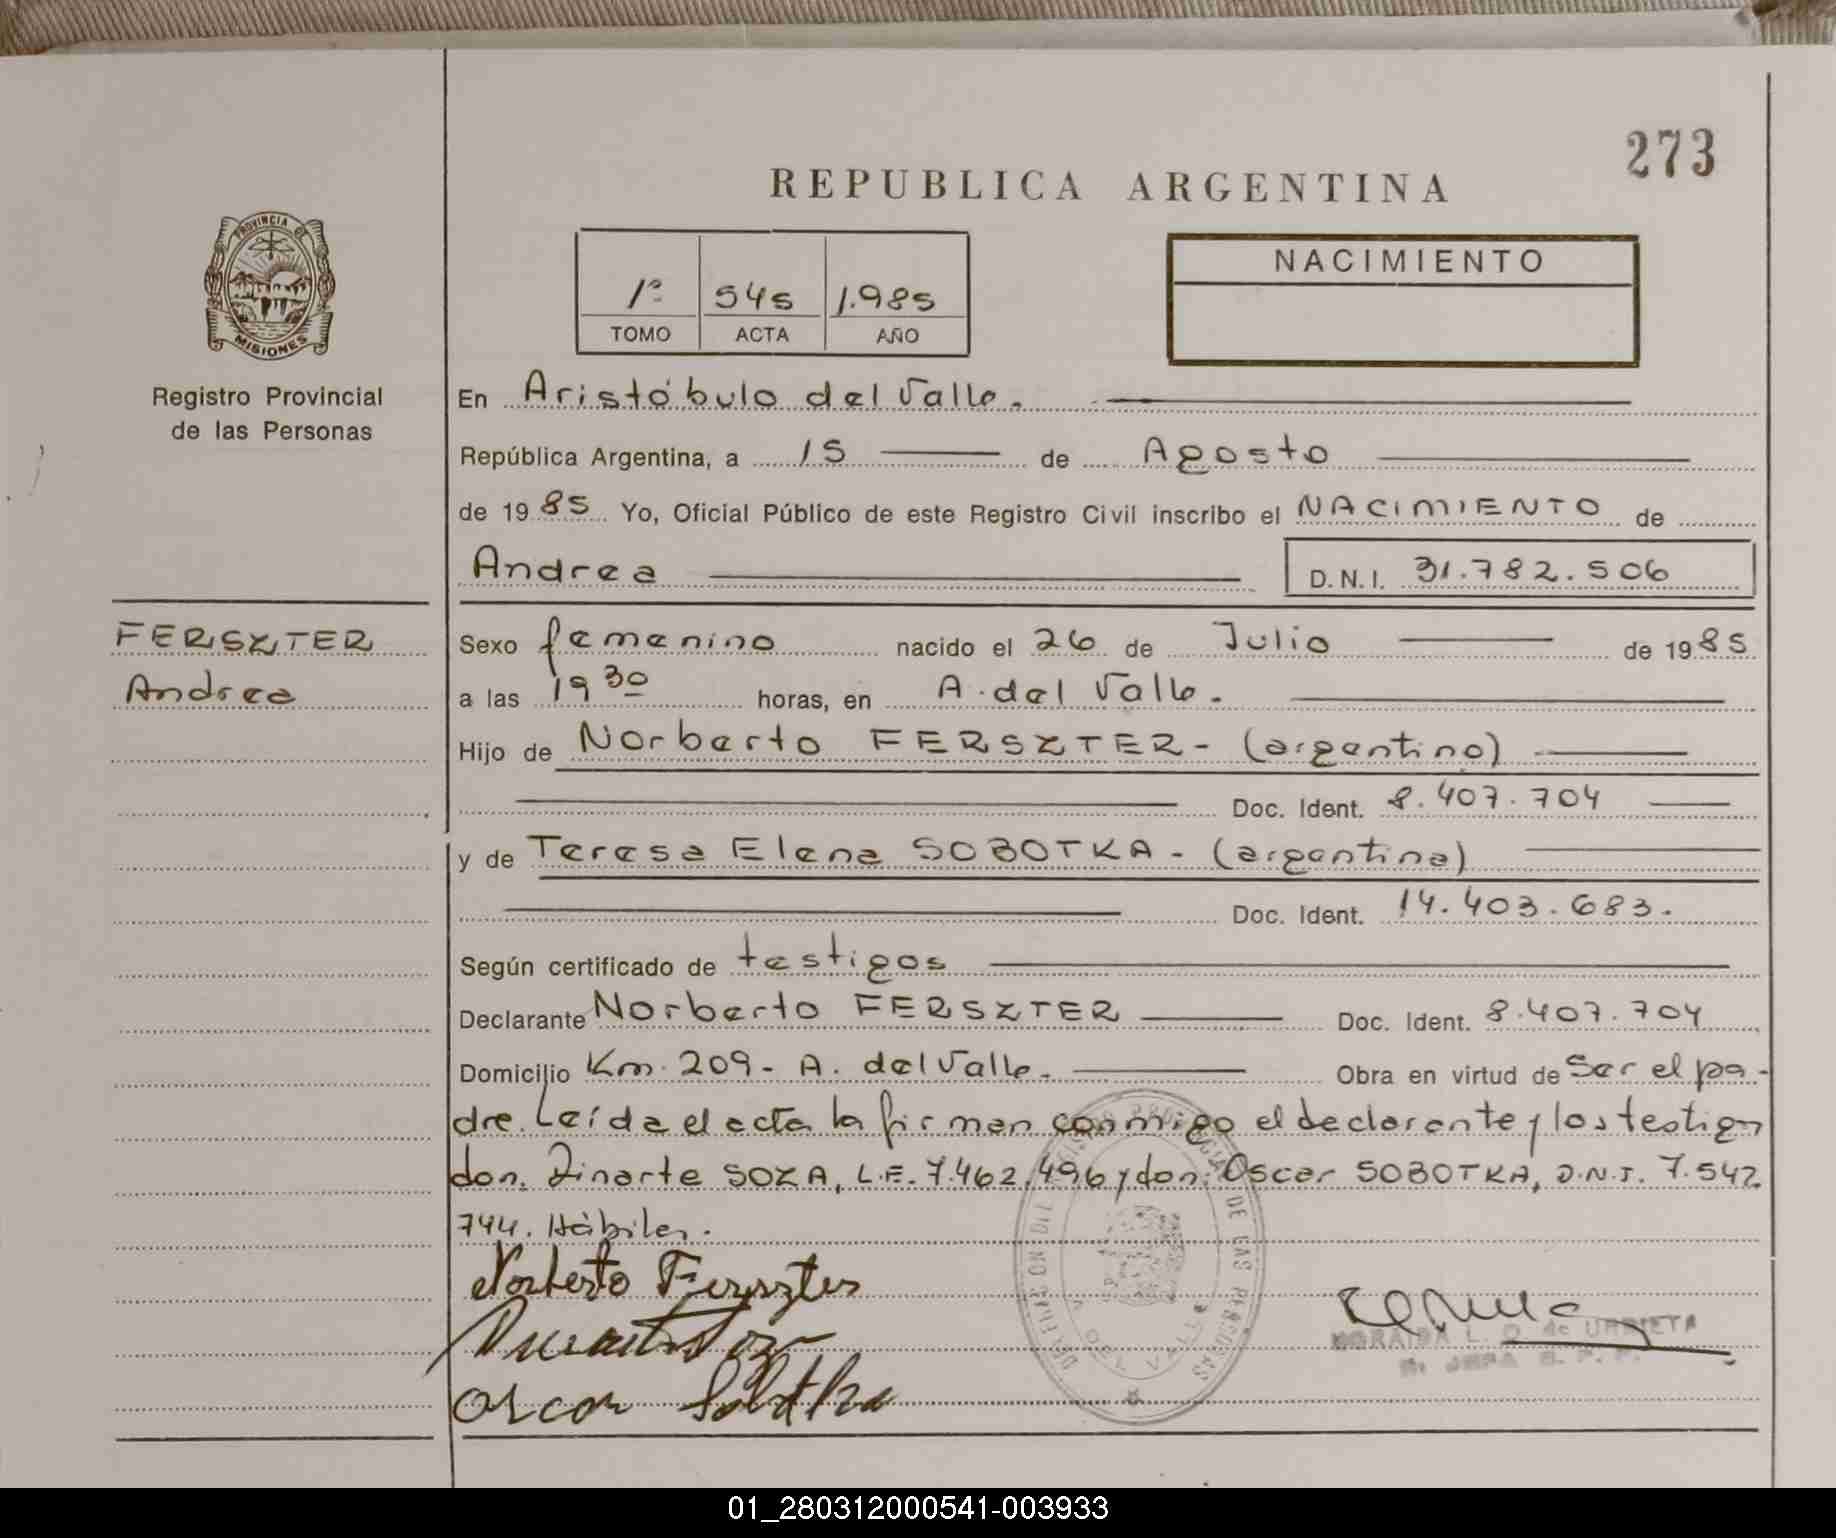 273
REPUBLICA ARGENTINA
PROVINCIA DE
MISIONES
Registro Provincial
de las Personas
1º 545 1.985
TOMO ACTA AÑO
NACIMIENTO
En Aristóbulo del Valle.
República Argentina, a 15 de Agosto
de 1985 Yo, Oficial Público de este Registro Civil inscribo el NACIMIENTO de
Andrea D.N.I. 31.782.506
FERSZTER
Andrea
Sexo femenino nacido el 26 de Julio de 1985
a las 19 30 horas, en A. del Valle.
Hijo de Norberto FERSZTER - (argentino)
Doc. Ident. 8.407.704
y de Teresa Elena SOBOTKA - (argentina)
Doc. Ident. 14.403.683.
Según certificado de testigos
Declarante Norberto FERSZTER Doc. Ident. 8.407.704
Domicilio Km. 209 - A. del Valle. Obra en virtud de Ser el pa-
dre. Leída el acta la firman conmigo el declarante y los testigos
don. Dinarte SOZA, L.E. 7.462.496 y don: Oscar SOBOTKA, D.N.I. 7.542.
744. Hábiles.
Norberto Ferszter
Oscar Sobotka
DE LAS PERSONAS
DEL VALLE
L. O. de URRIETA
01_280312000541-003933